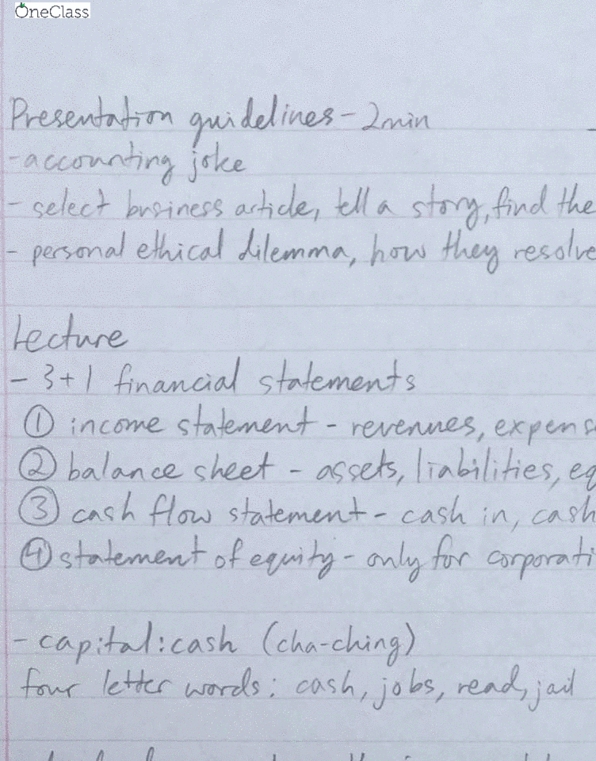 OneClass
Presentation guidelines - 2min
- accounting joke
- select business article, tell a story, find the
- personal ethical dilemma, how they resolve
Lecture
- 3+1 financial statements
① income statement - revenues, expens
② balance sheet - assets, liabilities, eq
③ cash flow statement - cash in, cash
④ statement of equity - only for corporati
- capital: cash (cha-ching)
four letter words: cash, jobs, read, jail